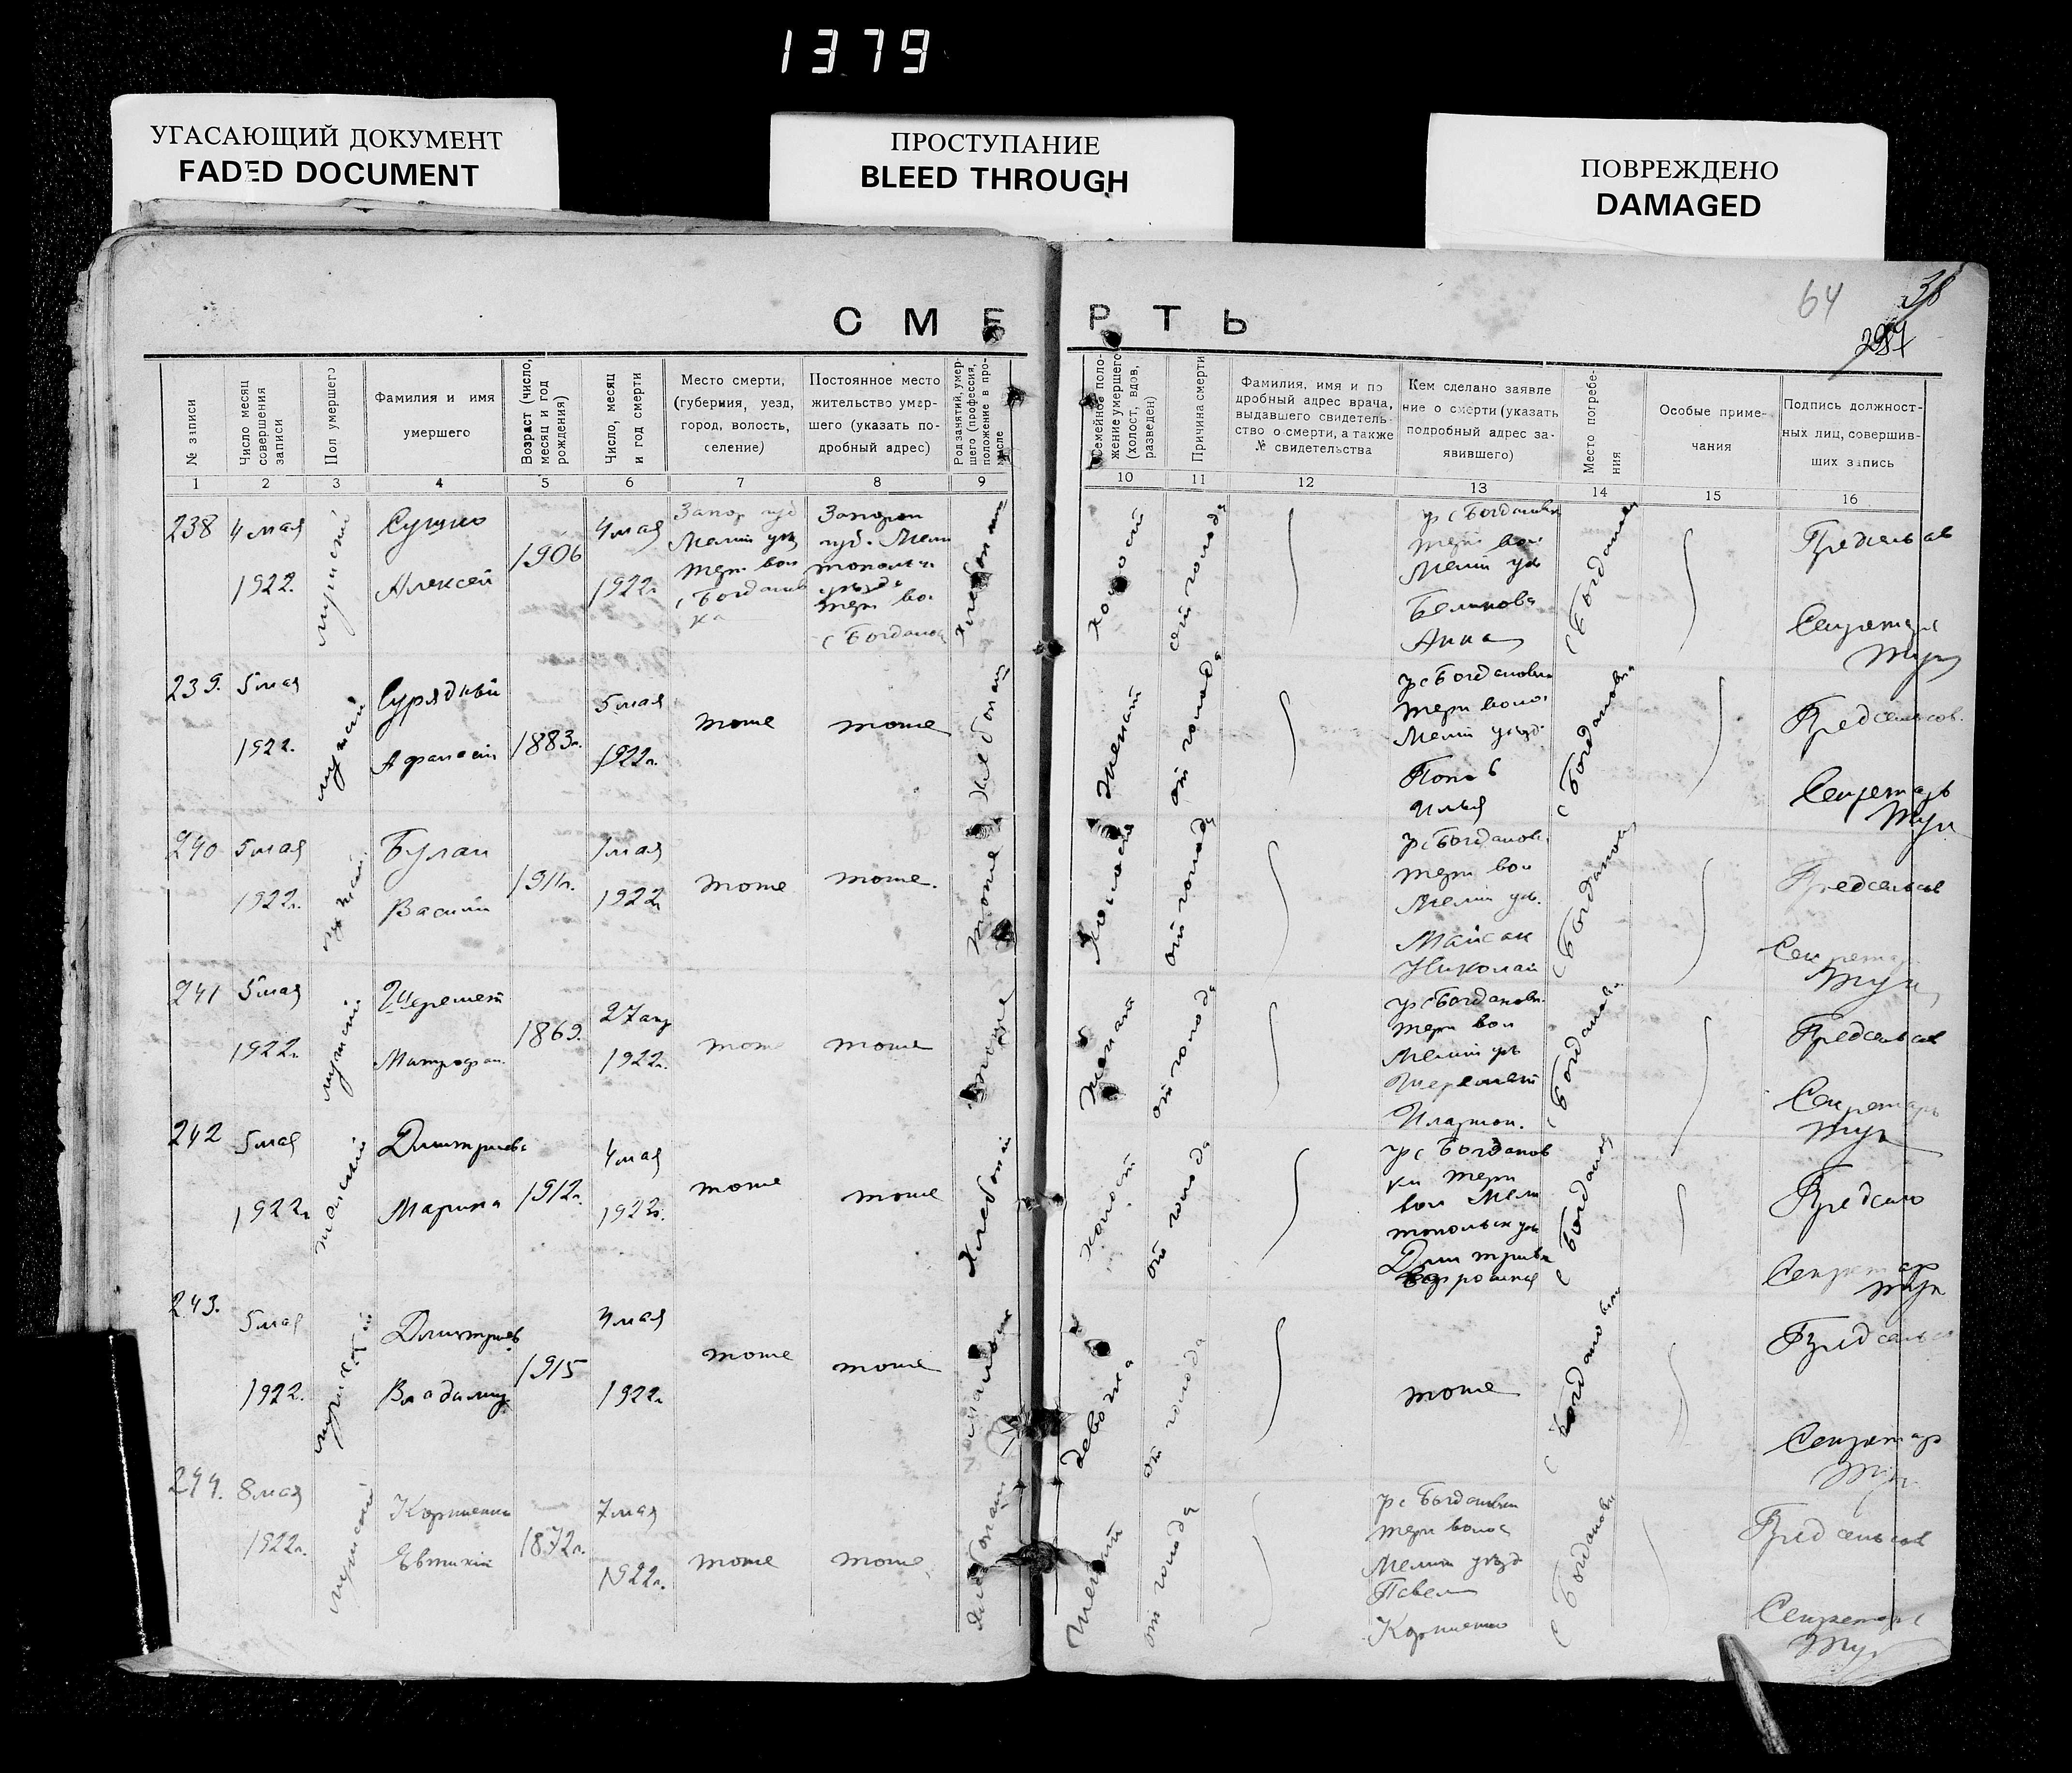 1379
УГАСАЮЩИЙ ДОКУМЕНТ
FADED DOCUMENT
ПРОСТУПАНИЕ
BLEED THROUGH
ПОВРЕЖДЕНО
DAMAGED
64
38
СМЕРТЬ
№ записи
Число месяц
совершения
записи
Пол умершего
Фамилия и имя
умершего
Возраст (число,
месяц и год
рождения)
Число, месяц
и год смерти
Место смерти,
(губерния, уезд,
город, волость,
селение)
Постоянное место
жительство умер-
шего (указать по-
дробный адрес)
Род занятий, умер-
шего (профессия,
положение в про-
мысле
Семейное поло-
жение умершего
(холост, вдов,
разведен)
Причина смерти
Фамилия, имя и по
дробный адрес врача,
выдавшего свидетель-
ство о смерти, а также
№ свидетельства
Кем сделано заявле
ние о смерти (указать
подробный адрес за-
явившего)
Место погребе-
ния
Особые приме-
чания
Подпись должност-
ных лиц, совершив-
ших запись
1 2 3 4 5 6 7 8 9 10 11 12 13 14 15 16
238
4 мая
1922.
мужской
Алексей
1906
4 мая
1922г.
Запор губ
Мели
терп вол
с Богданов
ка
Запорож
губ. Мели
топольск
уезда
терп во.
с Богданов
Хлебопаш
Холост
от голода
гр с Богдановки
терп вол
Мели уез
Беликова
Анна
с Богдановк
Предсельсов
Секретарь
239.
5 мая
1922.
мужской
Сурядный
Афанасий
1883г.
5 мая
1922г.
тоже
тоже
Хлебопаш
Женат
от голода
гр с Богдановки
терп воло
Мели уезд
Попов
Илья
с Богдановка
Предсельсов.
Секретарь
240
5 мая
1922г.
Булан
Васили
1911г.
1922
тоже
тоже.
тоже
Холост
от голода
гр с Богданов.
терп вол
Мели уез.
Майсак
Николай
с Богданов
Предсельсов
Секретар
241
5 мая
1922г.
мужской
Шеремет
Митрофан.
1869.
27 апр
1922г.
тоже
тоже
тоже
Женат
от голода
гр с Богдановк.
терп вол
Мели уез
Шеремет
Платон.
с Богдановк
Предсельсов
Секретарь
242
5 мая
1922г
женский
Дмитриева
Марина
1912г.
4 мая
1922г.
тоже
тоже
Хлебопаш
холост
от голода
гр с Богданов
ки терп
вол Мели
топольск уез
Дмитриева
с Богданов
Секретар
243.
5 мая
1922.
мужской
Дмитриев
Владимир
1915
4 мая
1922г
тоже
тоже
от голода
тоже
с Богдановки
Предсельсо
Секретар
244.
8 мая
1922г.
мужской
Корниенко
Евтихий
1872г.
7 мая
1922г.
тоже
тоже
Хлебопаш
Женат
от голода
гр с Богдановки
терп волос
Мелит уезд
Павел
Корниенко
с Богдановк
Предсельсов
Секретарь